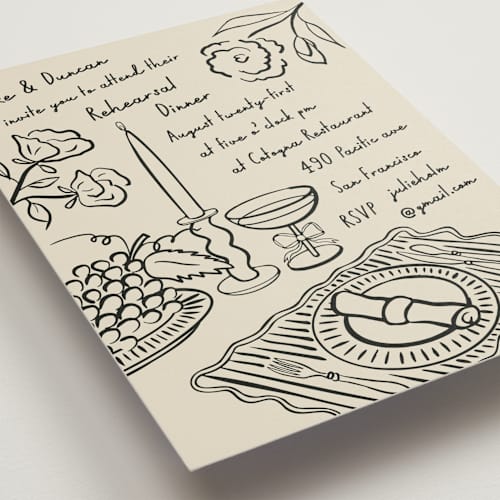 & Duncan
invite you to attend their
Rehearsal Dinner
August twenty-first
at five o'clock pm
at Cotogna Restaurant
490 Pacific ave
San Francisco
RSVP julieholm
@gmail.com